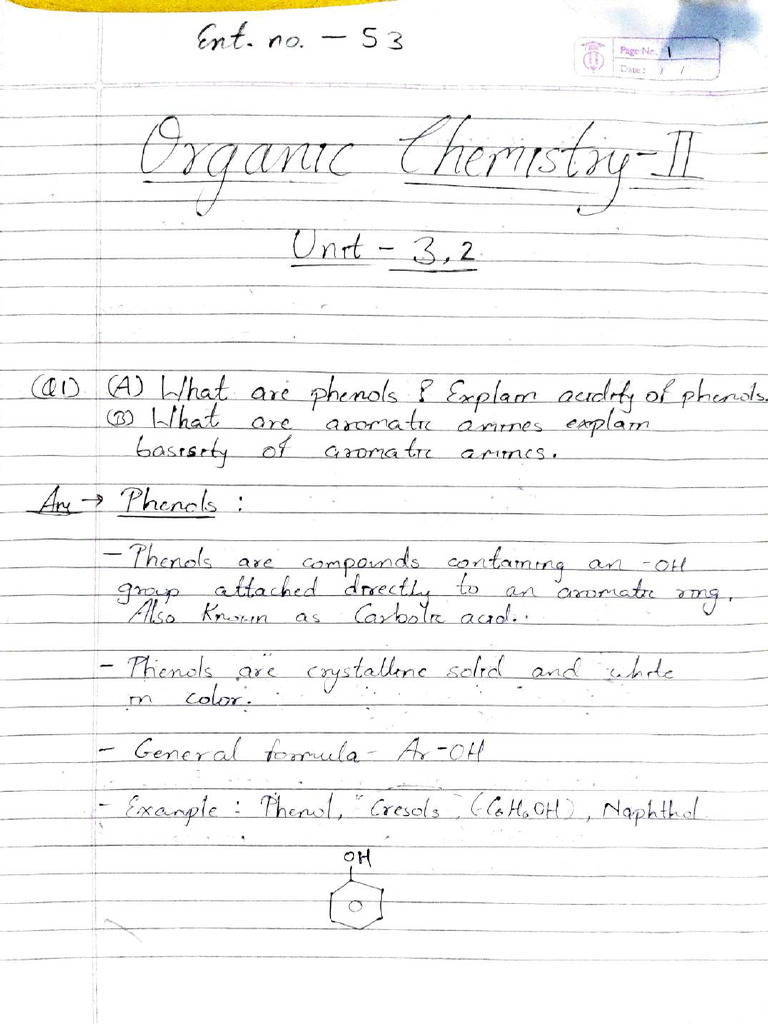 Ent. no. - 53
Page No. 1
Date: / /
Organic Chemistry-II
Unit - 3,2
(Q1) (A) What are phenols ? Explain acidity of phenols.
(B) What are aromatic amines explain
basisety of aromatic amines.
Ans → Phenols :
- Phenols are compounds containing an -OH
group attached directly to an aromatic ring.
Also Known as Carbolic acid.
- Phenols are crystalline solid and white
in color.
- General formula - Ar-OH
- Example : Phenol, Cresols, (C6H6OH), Naphthol
OH